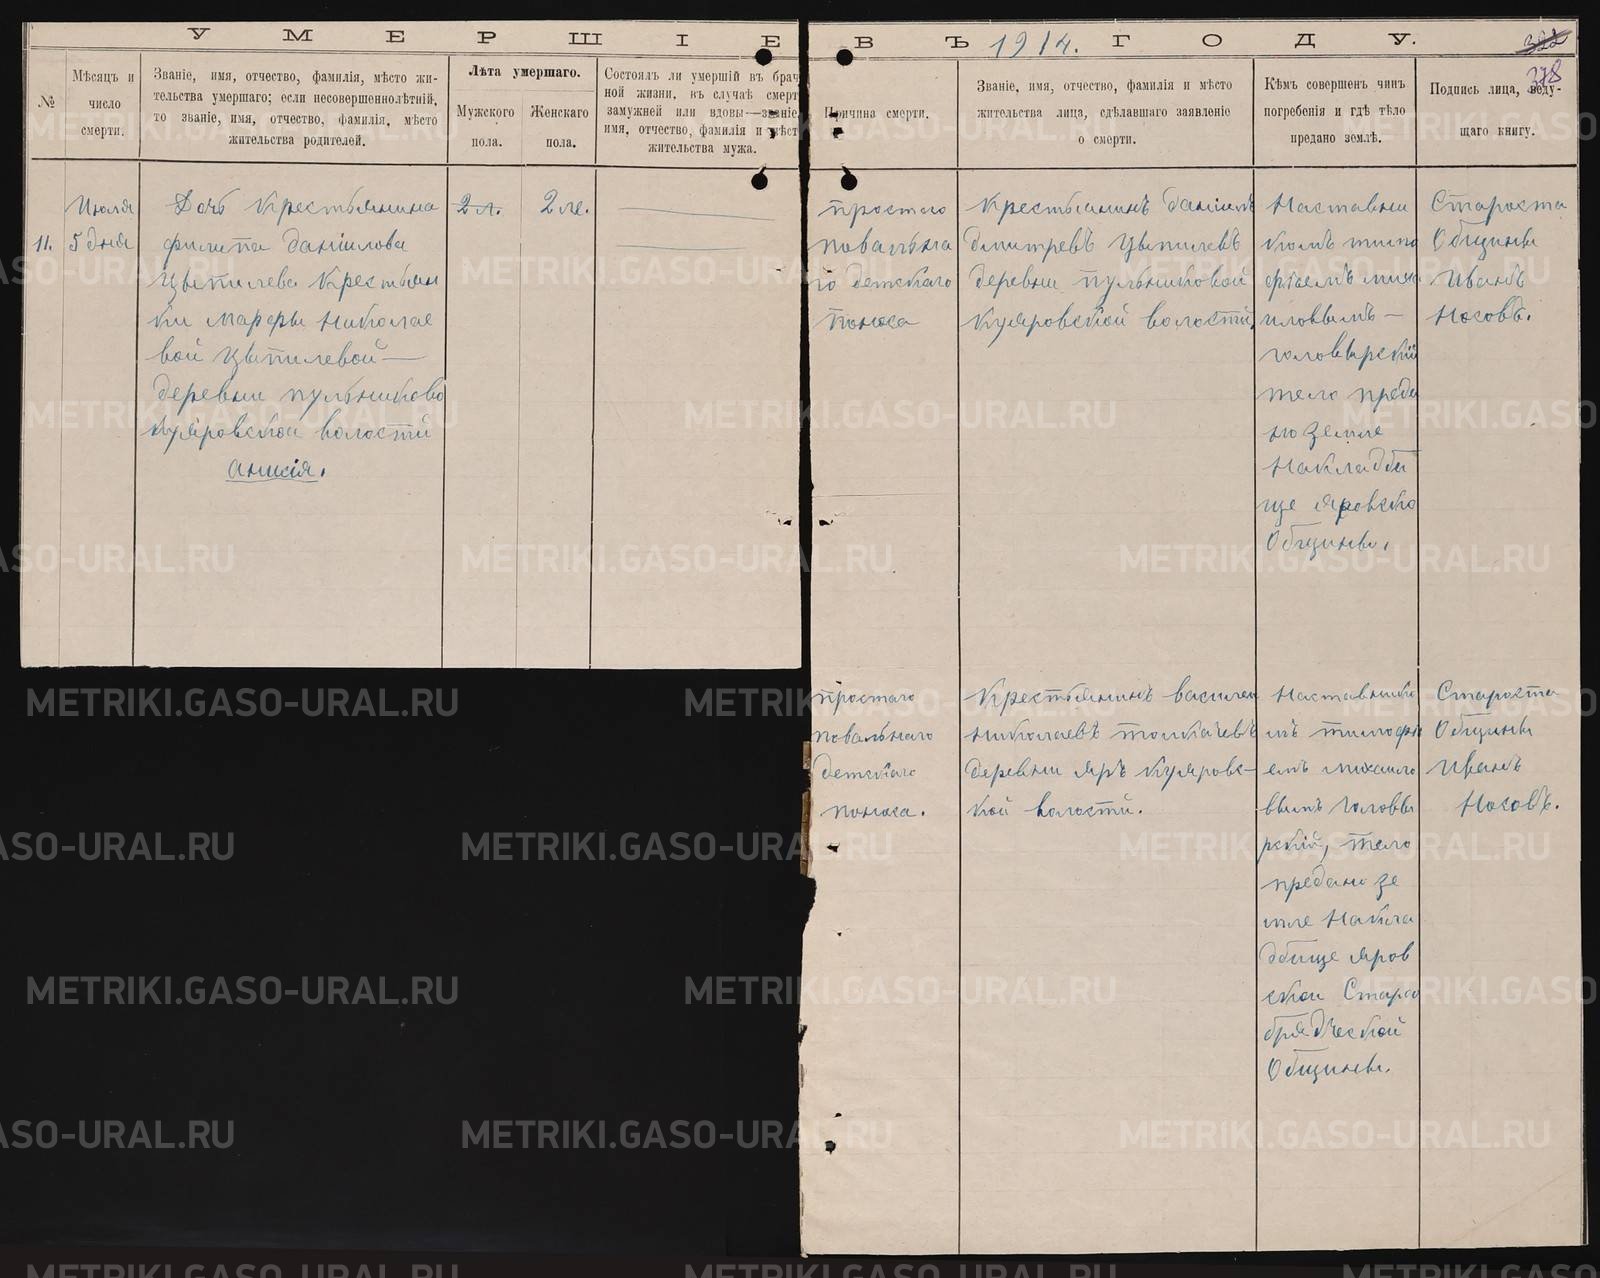 УМЕРШІЕ ВЪ 1914. ГОДУ.
322
378
№
Мѣсяцъ и
число
смерти.
Званіе, имя, отчество, фамилія, мѣсто жи-
тельства умершаго; если несовершеннолѣтній,
то званіе, имя, отчество, фамилія, мѣсто
жительства родителей.
Лѣта умершаго.
Мужского
пола.
Женскаго
пола.
Состоялъ ли умершій въ брач
ной жизни, въ случаѣ смерт
замужней или вдовы—званіе
имя, отчество, фамилія и мѣст
жительства мужа.
Причина смерти.
Званіе, имя, отчество, фамилія и мѣсто
жительства лица, сдѣлавшаго заявленіе
о смерти.
Кѣмъ совершенъ чинъ
погребенія и гдѣ тѣло
предано землѣ.
Подпись лица, веду-
щаго книгу.
11.
Июля
5 дня
Дочь Крестьянина
филипа даніилова
Цыпилева Крестьян
ки марфы николае
вой Цыпилевой—
деревни пульниково
Куяровской волости
анисія.
2 л.
2 ле.
простаго
повальна
го детскаго
поноса
Крестьянинъ даніилъ
дмитревъ Цыпилевъ
деревни пульниковой
Куяровской волости,
Наставни
комъ тимо
фѣемъ миха
иловымъ—
головырский
тело преда
но земле
Накладби
ще яровско
Общины.
Староста
Общины
Иванъ
Носовъ.
простаго
повальнаго
детскаго
поноса.
Крестьянинъ василеи
николаевъ толкачевъ
деревни яръ Куяровс—
кой волости.
Наставнико
мъ тимофе
емъ михаило
вымъ головы
рский, тело
предано зе
мле Накла
дбище яров
скои Старо
брядческой
Общины.
Староста
Общины
Иванъ
Носовъ.
METRIKI.GASO-URAL.RU